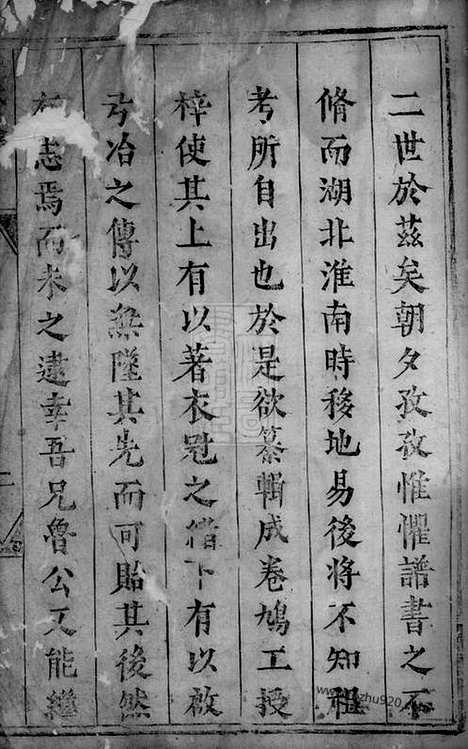 二世於茲矣朝夕孜孜惟懼譜書之不
脩而湖北淮南時移地易後將不知祖
考所自出也於是欲纂輯成卷鳩工授
梓使其上有以著衣冠之下有以啟
弓冶之傳以無墜其先而可貽其後然
志焉而未之逮幸吾兄魯公又能繼